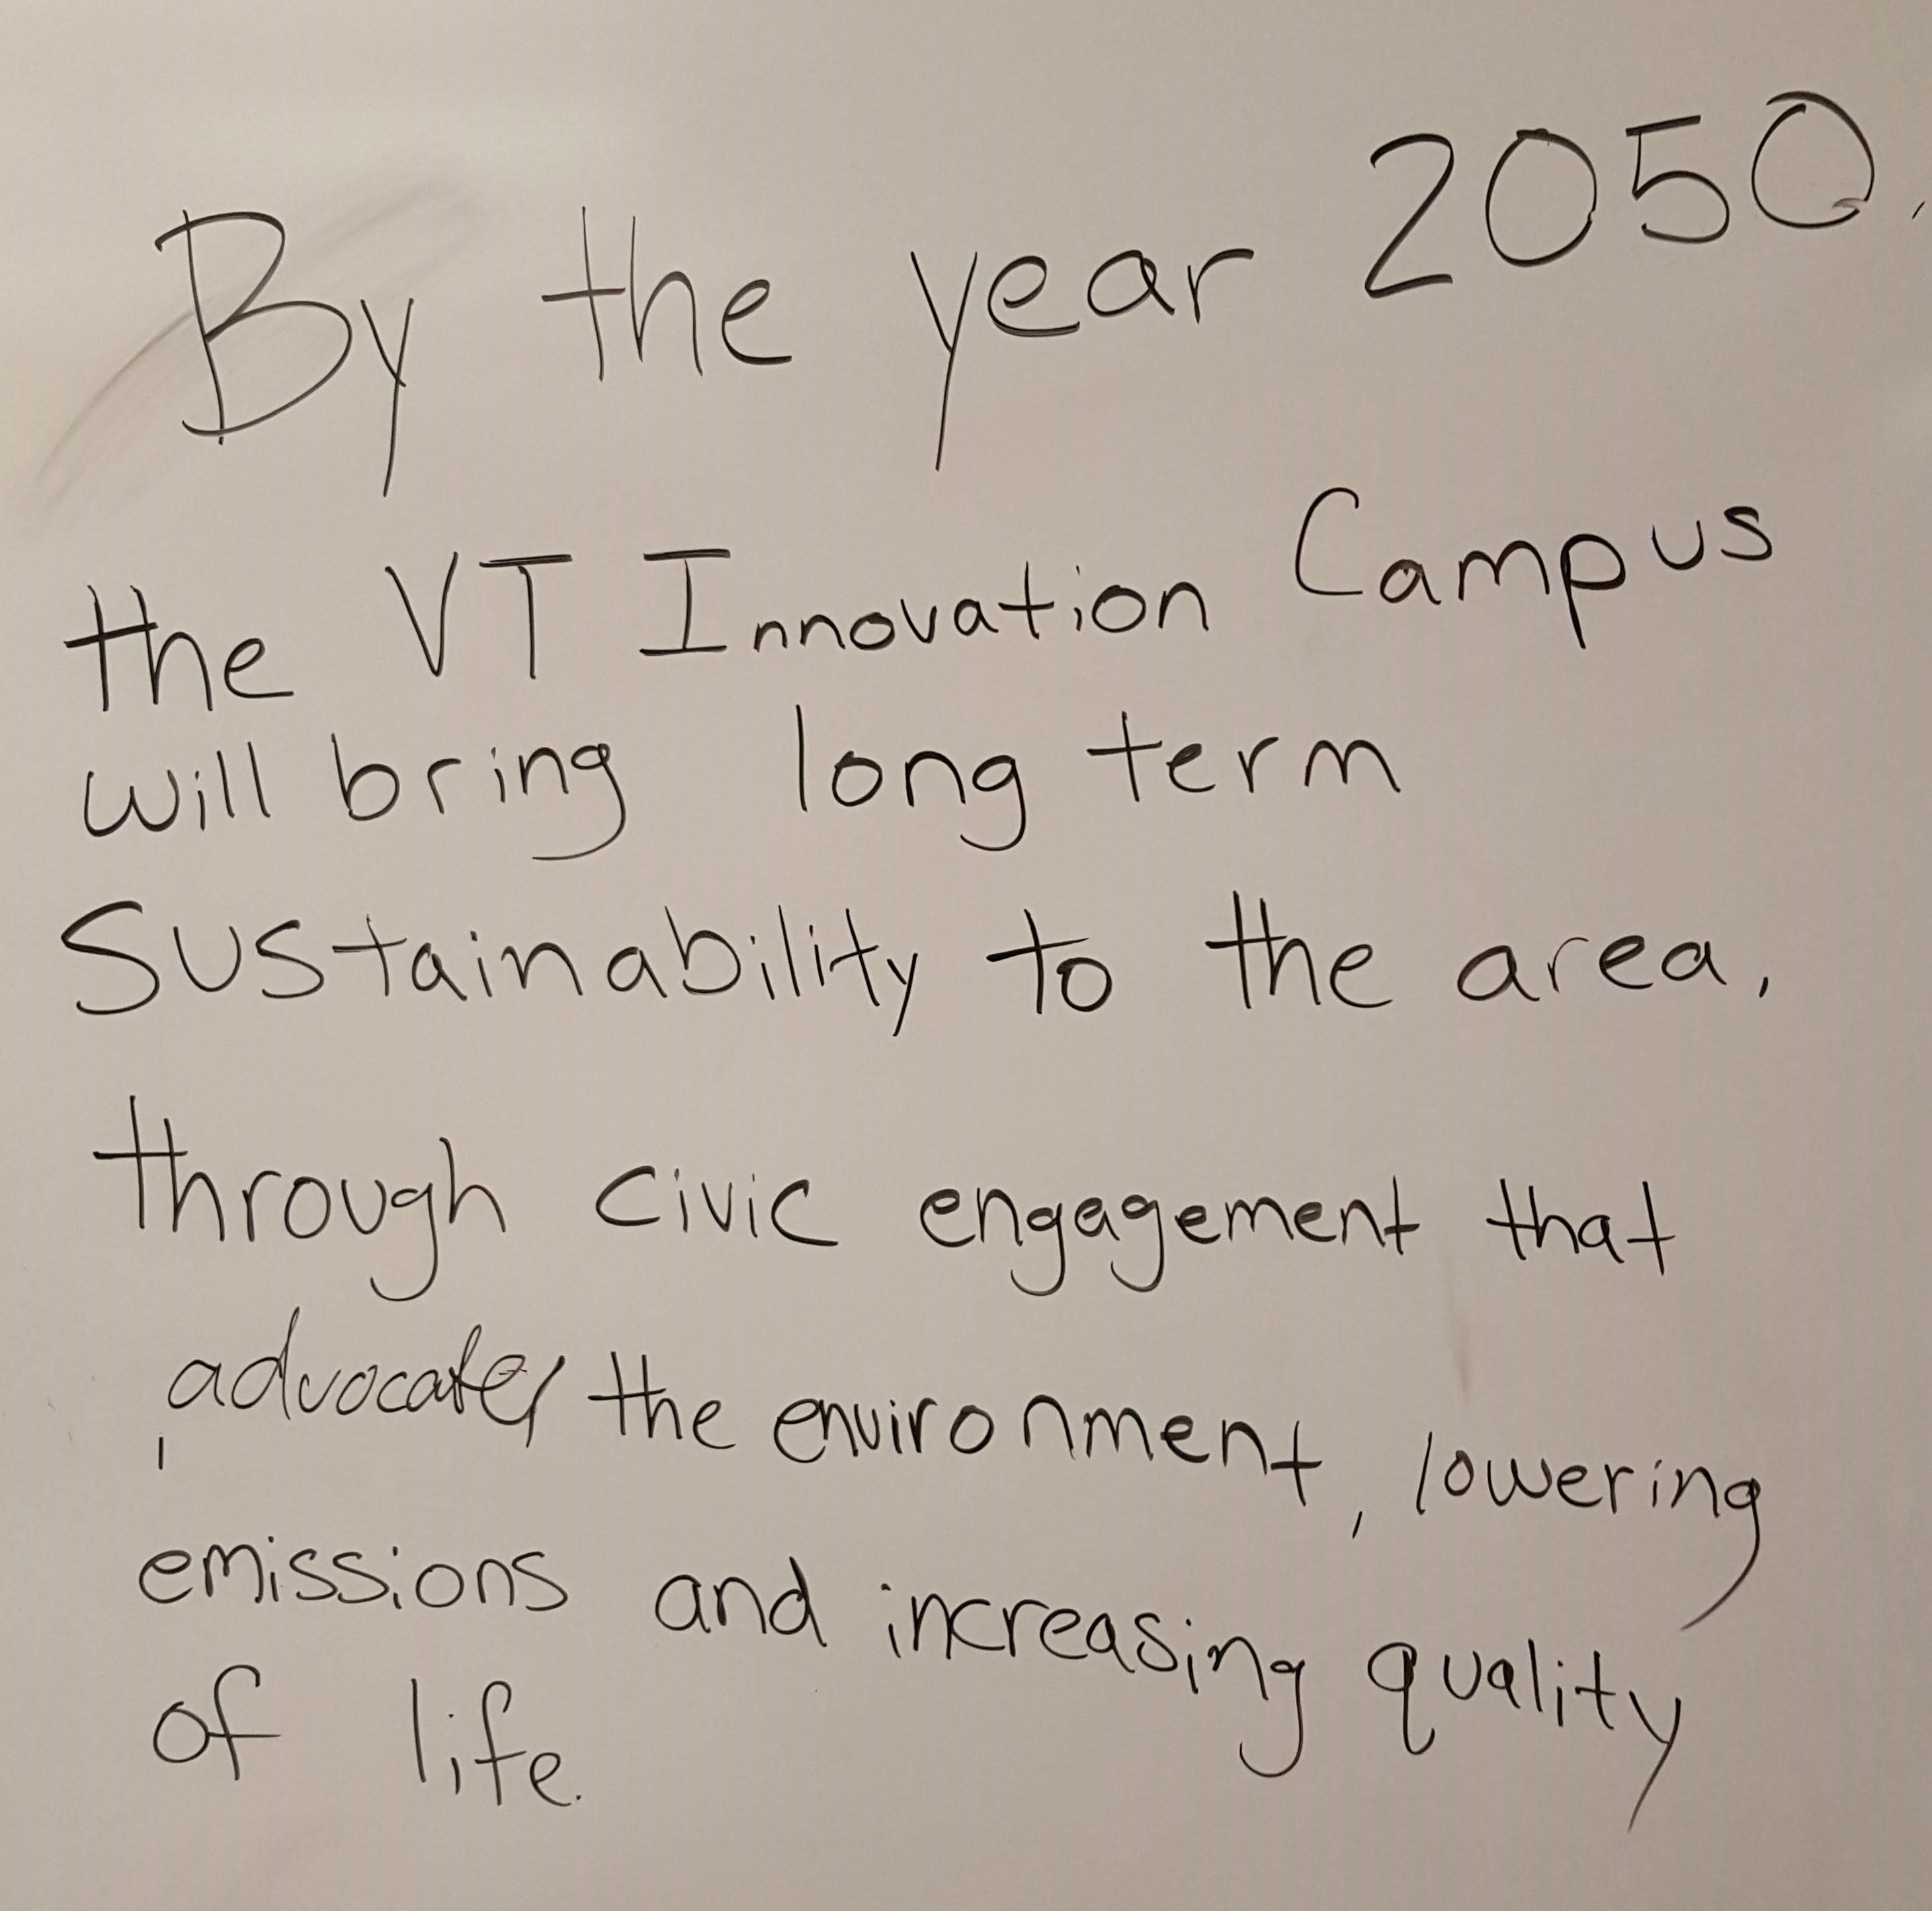 By the year 2050,
the VT Innovation Campus
will bring long term
Sustainability to the area,
through civic engagement that
advocates the environment, lowering
emissions and increasing quality
of life.